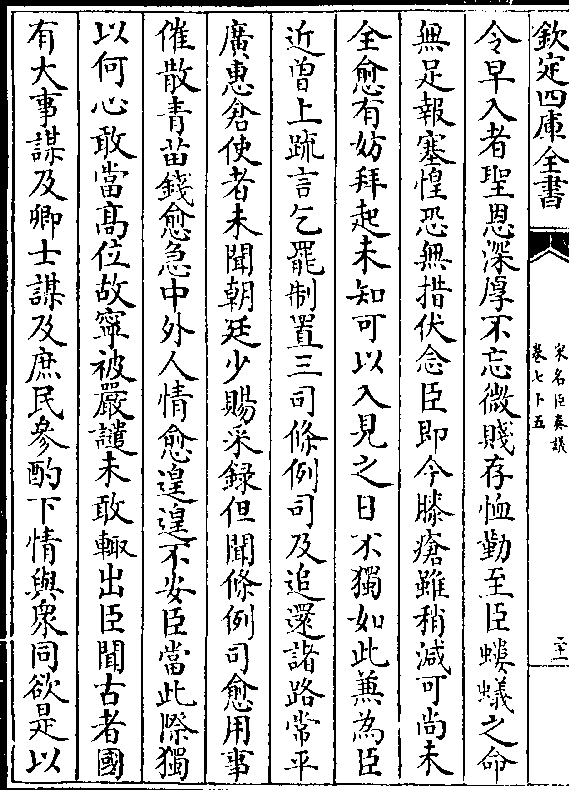 欽定四庫全書
宋名臣奏議
卷七十五
二十一
令早入者聖恩深厚不忘微賤存恤勤至臣螻蟻之命
無足報塞惶恐無措伏念臣即今膝瘡雖稍減可尚未
全愈有妨拜起未知可以入見之日不獨如此兼為臣
近曾上疏言乞罷制置三司條例司及追還諸路常平
廣惠倉使者未聞朝廷少賜采録但聞條例司愈用事
催散青苗錢愈急中外人情愈遑遑不安臣當此際獨
以何心敢當髙位故寧被嚴譴未敢輙出臣聞古者國
有大事謀及卿士謀及庶民參酌下情與衆同欲是以